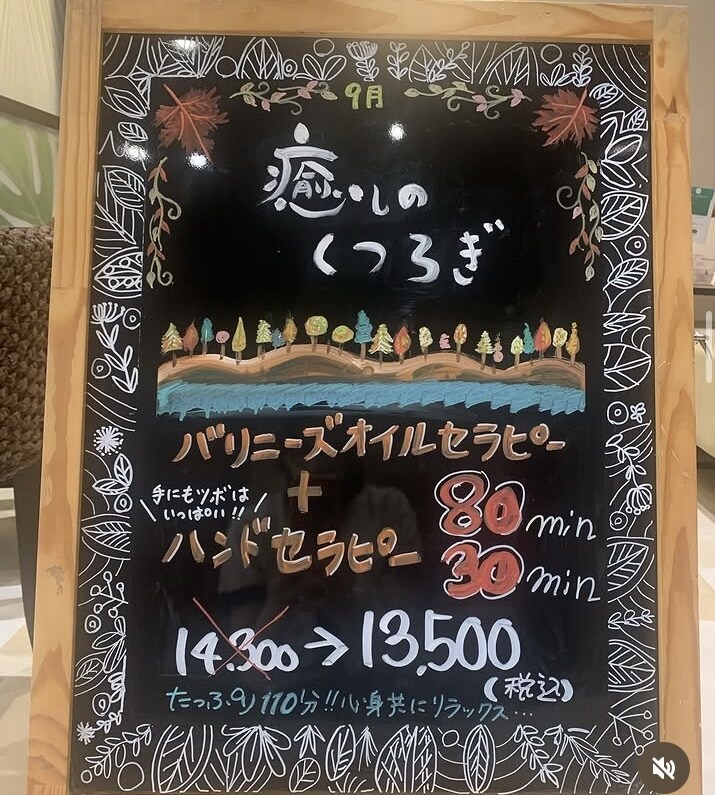 9月
癒しの
くつろぎ
バリニーズオイルセラピー
+
手にもツボは
いっぱい!!
ハンドセラピー
80min
30min
14.300→13,500
(税込)
たっぷり110分!!心身共にリラックス…